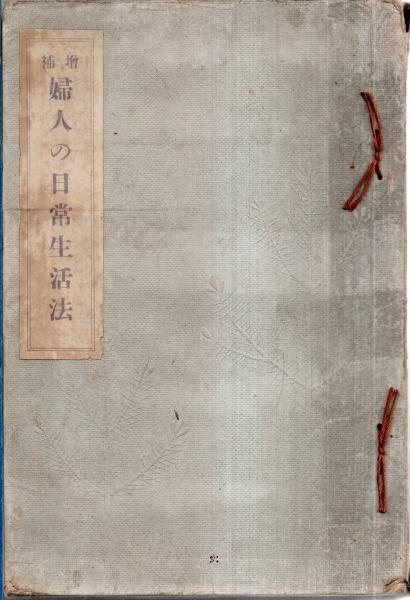 増補
婦人の日常生活法